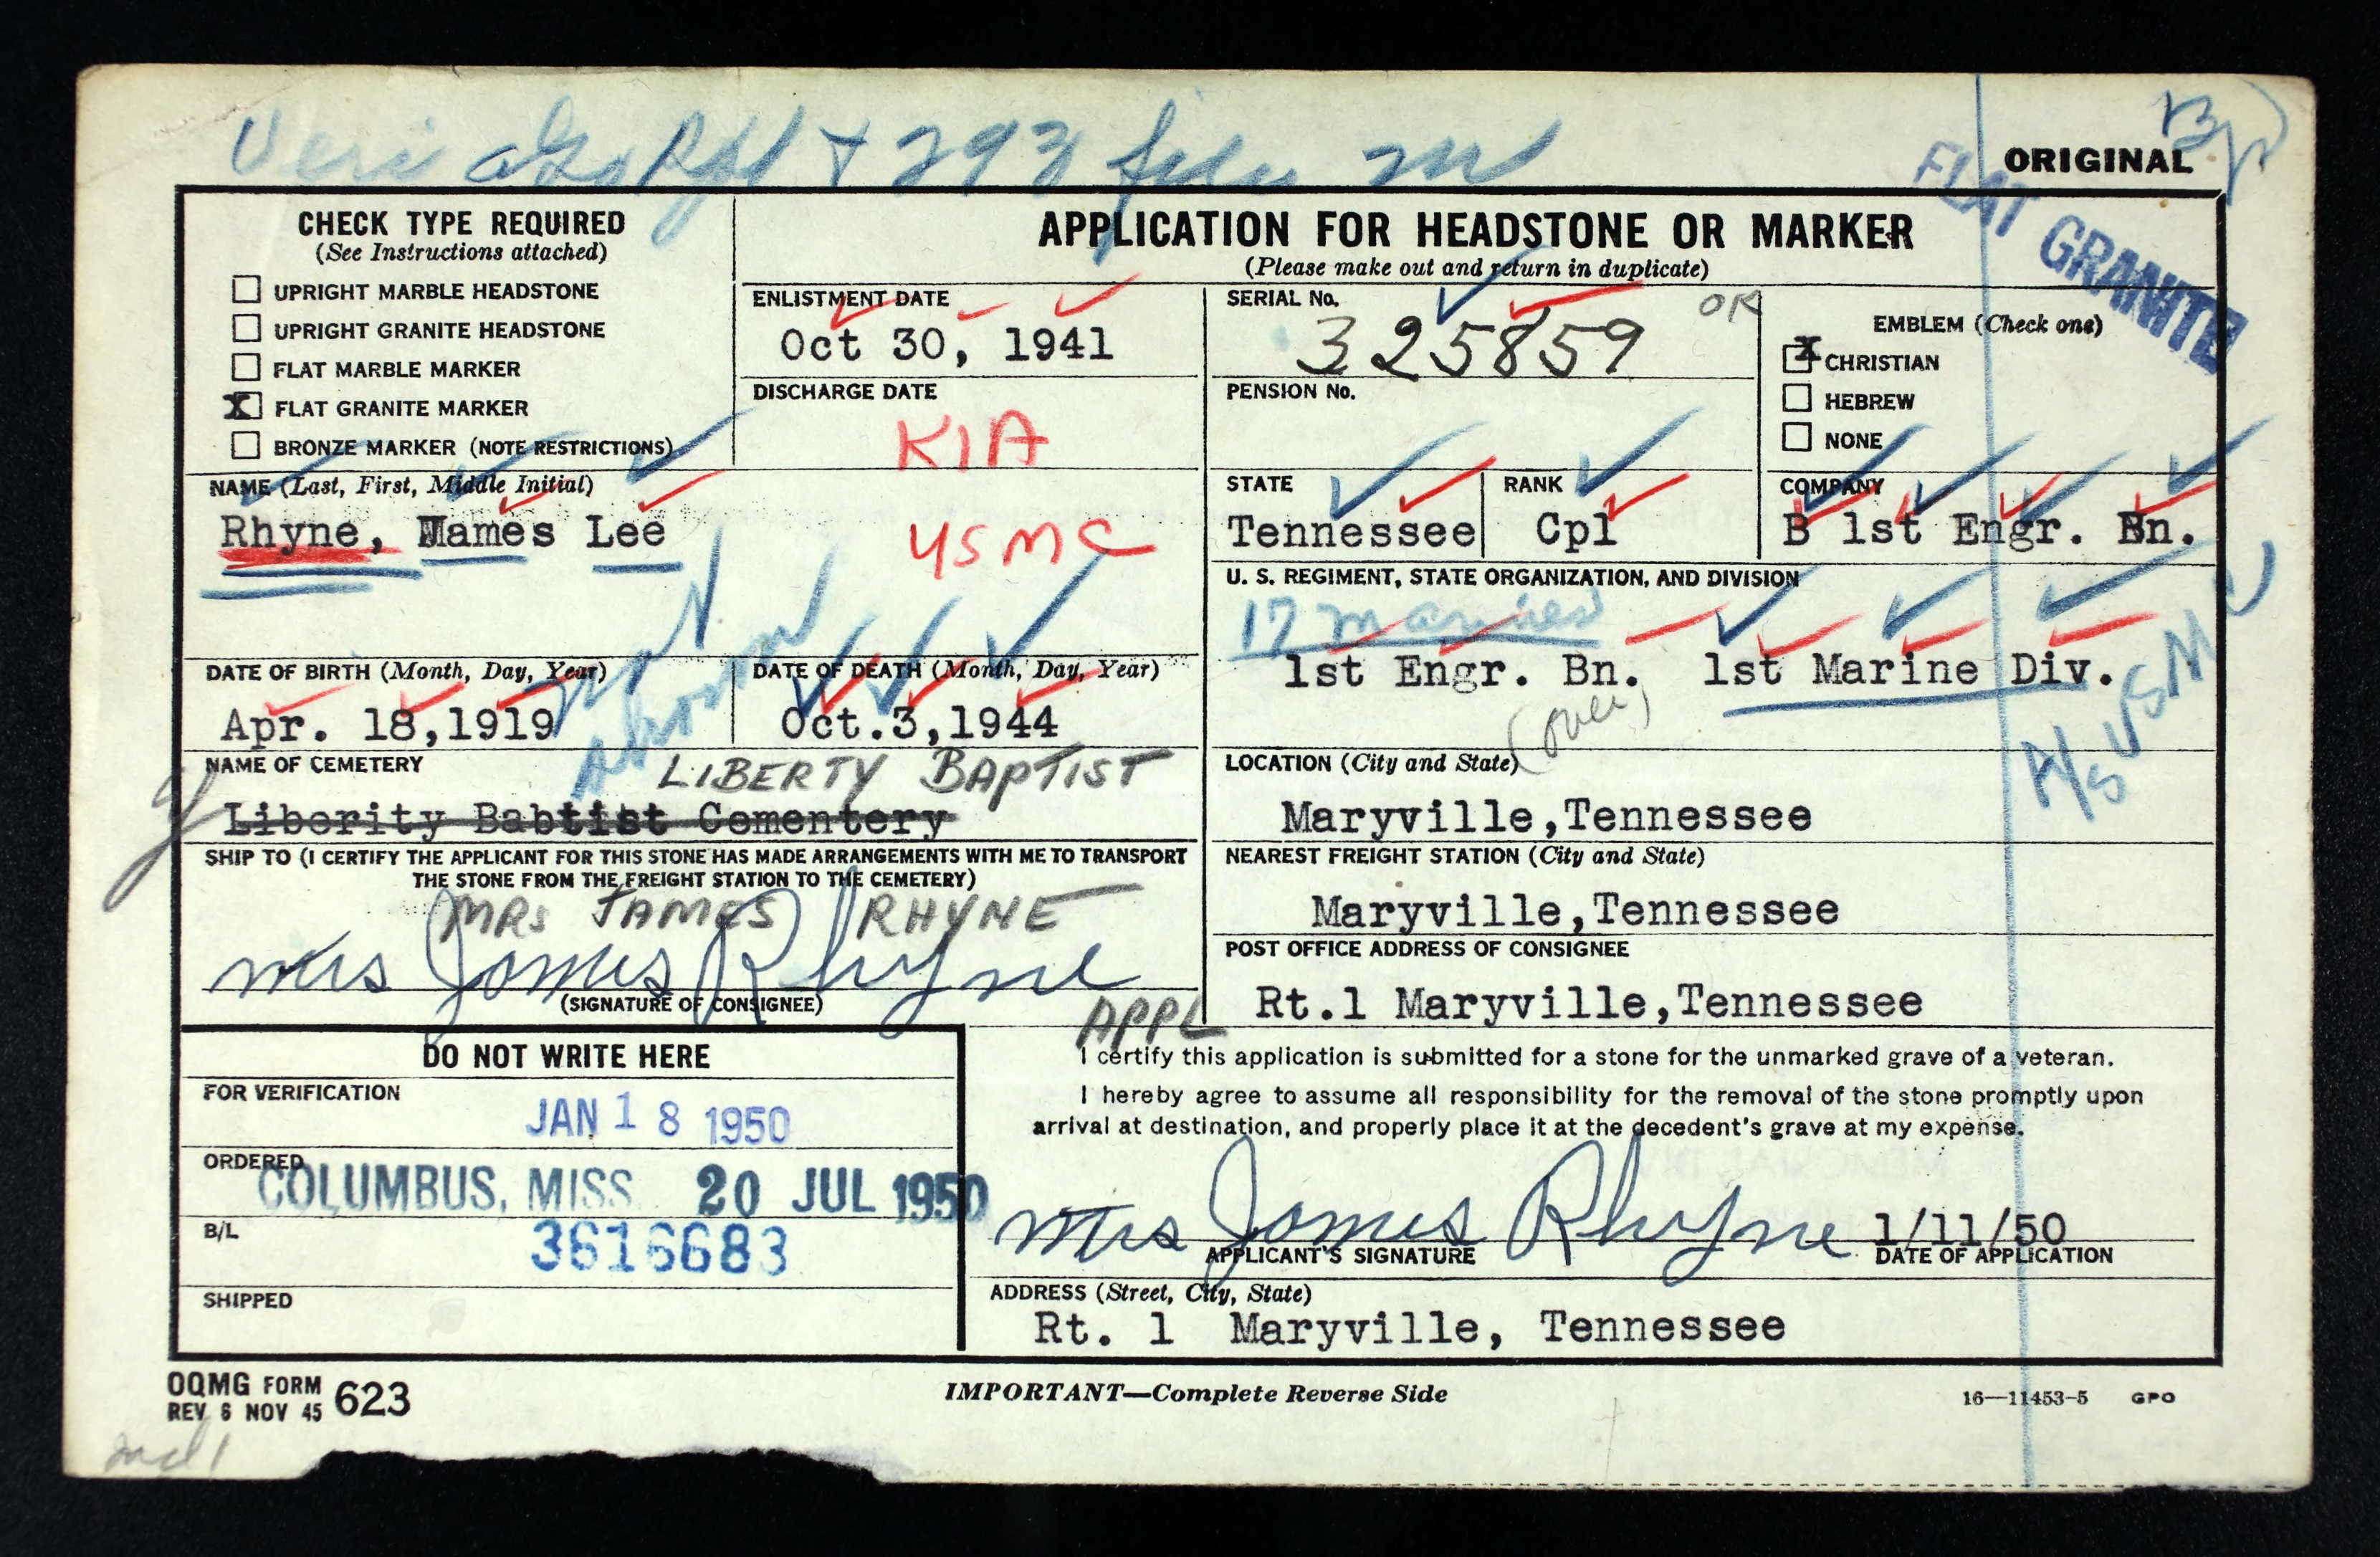 + 293 file
ORIGINAL
FLAT GRANITE
CHECK TYPE REQUIRED
(See Instructions attached)
UPRIGHT MARBLE HEADSTONE
UPRIGHT GRANITE HEADSTONE
FLAT MARBLE MARKER
X FLAT GRANITE MARKER
BRONZE MARKER (NOTE RESTRICTIONS)
APPLICATION FOR HEADSTONE OR MARKER
(Please make out and return in duplicate)
ENLISTMENT DATE
Oct 30, 1941
DISCHARGE DATE
KIA
USMC
SERIAL No.
325859 OK
PENSION No.
EMBLEM (Check one)
X CHRISTIAN
HEBREW
NONE
NAME (Last, First, Middle Initial)
Rhyne, James Lee
STATE
Tennessee
RANK
Cpl
COMPANY
B 1st Engr. Bn.
U. S. REGIMENT, STATE ORGANIZATION, AND DIVISION
17 Marines
1st Engr. Bn. 1st Marine Div.
(over)
USMC
DATE OF BIRTH (Month, Day, Year)
Apr. 18,1919
DATE OF DEATH (Month, Day, Year)
Oct.3,1944
NAME OF CEMETERY
LIBERTY BAPTIST
Liberity Babtist Cementery
LOCATION (City and State)
Maryville,Tennessee
SHIP TO (I CERTIFY THE APPLICANT FOR THIS STONE HAS MADE ARRANGEMENTS WITH ME TO TRANSPORT
THE STONE FROM THE FREIGHT STATION TO THE CEMETERY)
MRS JAMES RHYNE
Mrs James Rhyne
(SIGNATURE OF CONSIGNEE)
NEAREST FREIGHT STATION (City and State)
Maryville,Tennessee
POST OFFICE ADDRESS OF CONSIGNEE
Rt.1 Maryville,Tennessee
APPL
DO NOT WRITE HERE
FOR VERIFICATION
JAN 18 1950
ORDERED
COLUMBUS, MISS. 20 JUL 1950
B/L
3616683
SHIPPED
I certify this application is submitted for a stone for the unmarked grave of a veteran.
I hereby agree to assume all responsibility for the removal of the stone promptly upon
arrival at destination, and properly place it at the decedent's grave at my expense.
Mrs James Rhyne 1/11/50
APPLICANT'S SIGNATURE DATE OF APPLICATION
ADDRESS (Street, City, State)
Rt. 1 Maryville, Tennessee
OQMG FORM 623
REV 6 NOV 45
IMPORTANT—Complete Reverse Side
16—11453-5 GPO